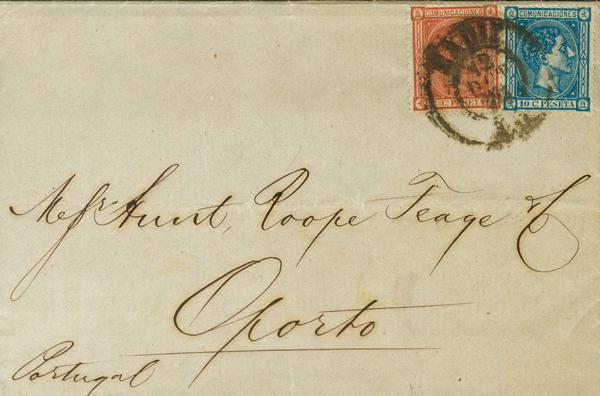 COMUNICACIONES COMUNICACIONES
Cs PESETA 10 Cs PESETA
Messrs Hunt, Roope Teage & C
Oporto
Portugal